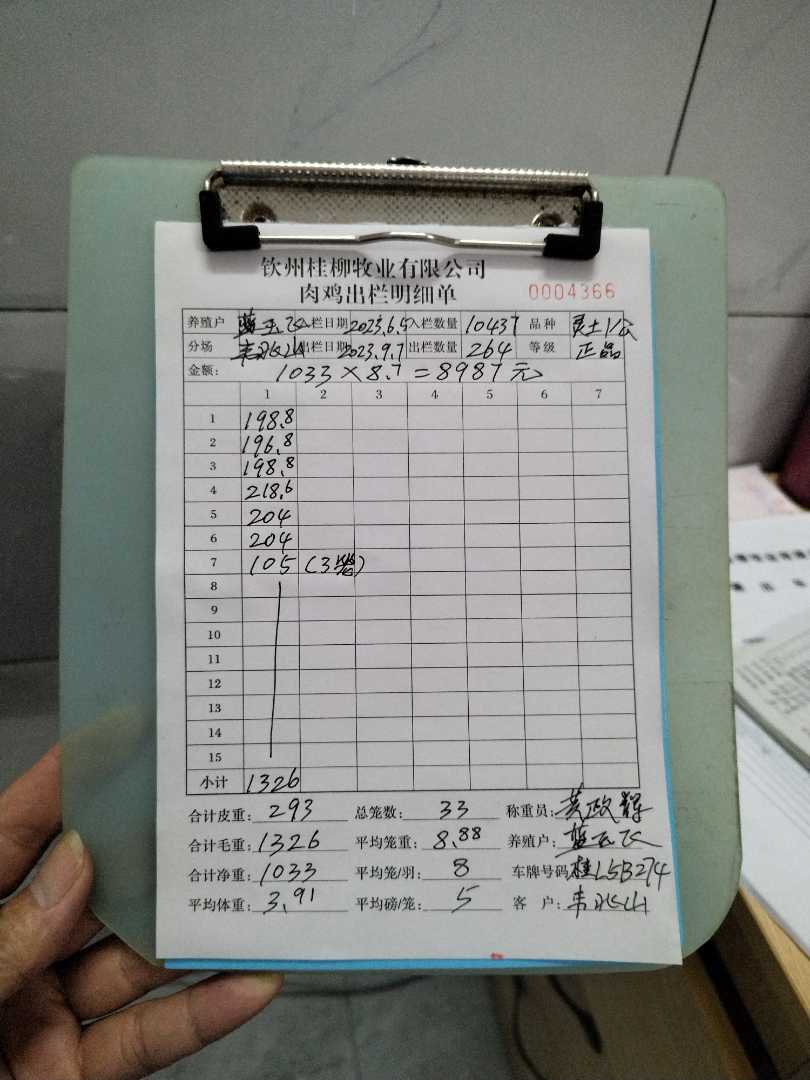 钦州桂柳牧业有限公司
肉鸡出栏明细单 0004366
养殖户 蓝玉飞 入栏日期 2023.6.5 入栏数量 10437 品种 灵土1/公
分场 韦兆山 出栏日期 2023.9.7 出栏数量 264 等级 正品
金额: 1033×8.7=8987元
1 2 3 4 5 6 7
1 198.8
2 196.8
3 198.8
4 218.6
5 204
6 204
7 105 (3笼)
8
9
10
11
12
13
14
15
小计 1326
合计皮重: 293 总笼数: 33 称重员: 黄政辉
合计毛重: 1326 平均笼重: 8.88 养殖户: 蓝玉飞
合计净重: 1033 平均笼/羽: 8 车牌号码 桂L5B274
平均体重: 3.91 平均磅/笼: 5 客 户: 韦兆山